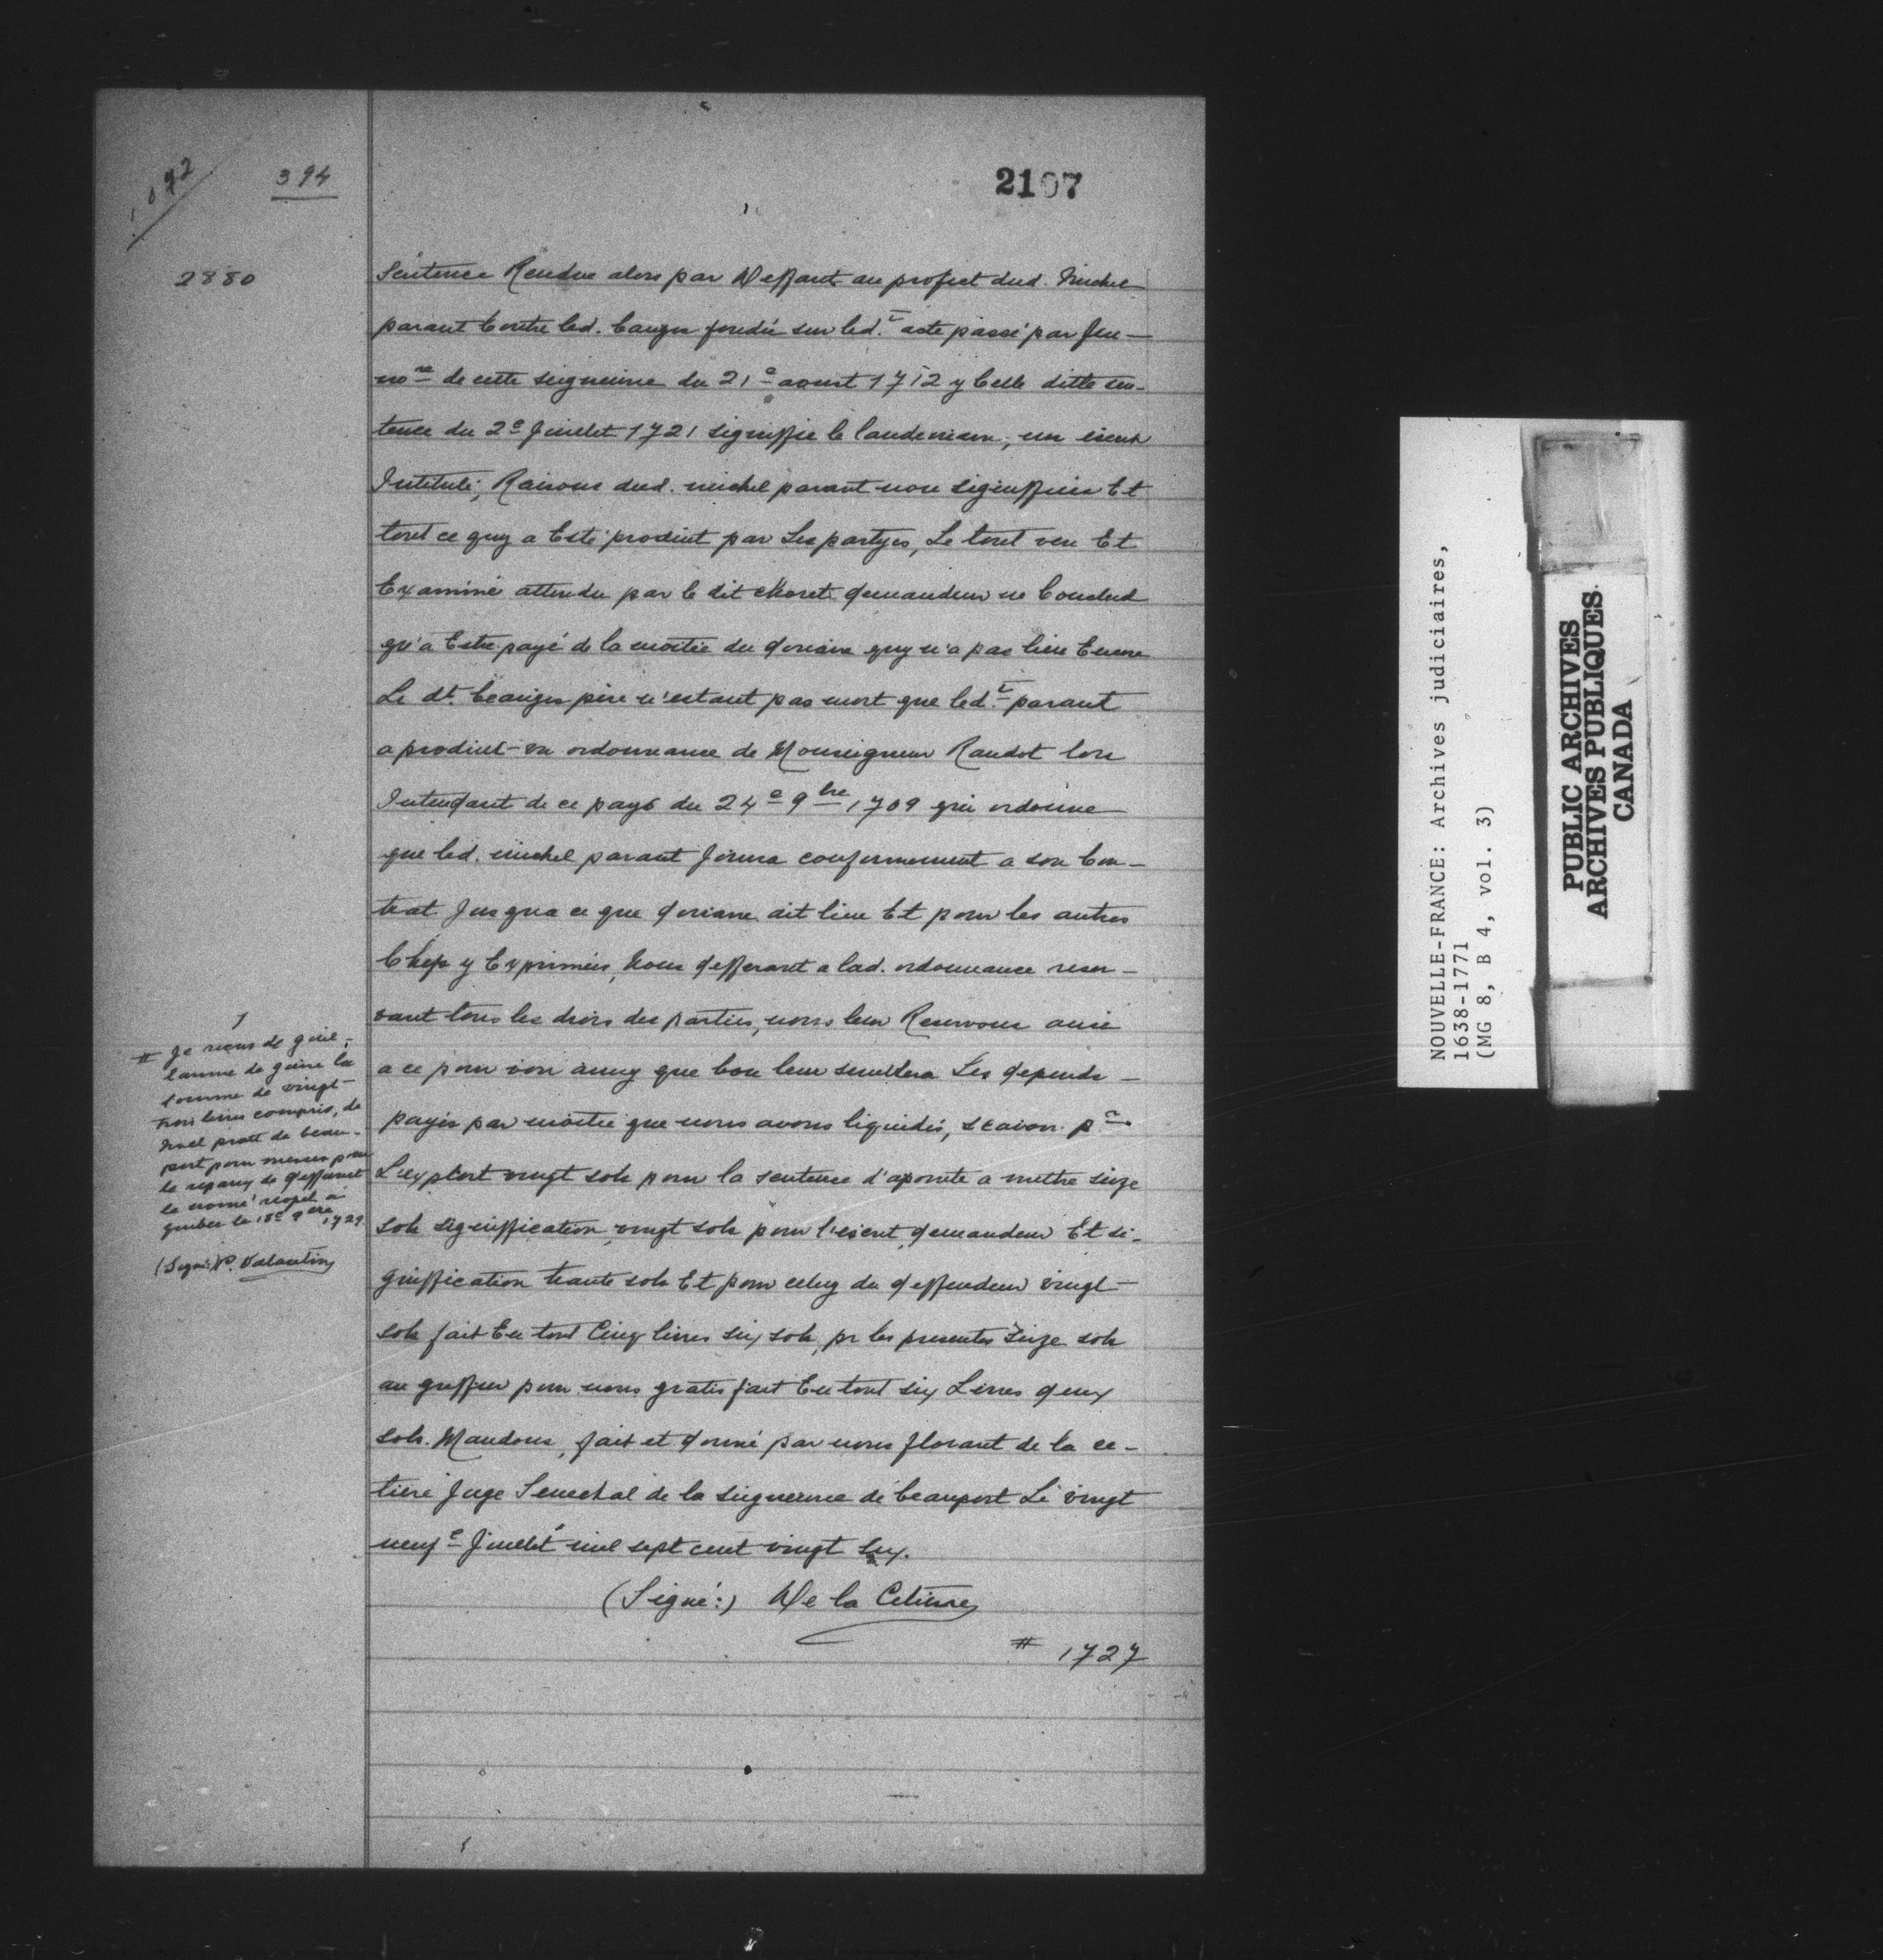 1092
394
2107
2880
Sentence Rendue alors par Deffaut au profict dud. Michel
parant Contre led. Cauger fondée sur led.t acte passé par feu
nore de cette seigneurie du 21e aoust 1712 y Celle ditte sen-
tence du 2e Juillet 1721 signiffie le landemain, un escrit
Intitulé, Raisons dud. michel parant non signiffiée Et
tout ce quy a Esté produit par Les partyes, Le tout veu Et
Examiné attendu par le dit choret demandeur ne Conclud
qu'a Estre payé de la moitié du doüaire quy n'a pas lieu Encore
Le dt. beaugis père n'estant pas mort que led.t parant
a produit un ordonnance de Monseigneur Raudot lors
Intendant de ce pays du 24e 9bre 1709 qui ordonne
que led. michel parant Jouira conformement a son Con-
trat Jusqua ce que doüaire ait lieu Et pour les autres
Chefs y Exprimées, Nous defferant a lad. ordonnance reser-
vant tous les drois des parties, nous leur Reservons aussi
a ce pourvoir ainsy que bon leur semblera Les depends
payés par moitié que nous avons liquidés, scavoir pr
L'exploit vingt sols pour la sentence d'apointe a mettre seize
sols signiffication vingt sols pour l'escrit demandeur Et si-
gniffication trante sols Et pour celuy du deffendeur vingt
sols fait En tout Cinq livres six sols, pr les presentes seize sols
au greffier pour nous gratis fait En tout six Livres deux
sols. Mandons, fait et donné par nous florant de la ce-
tiere Juge Senechal de la seigneurie de beauport Le vingt
neufe Juillet mil sept cent vingt six.
(Signé:) De la Cetiere
# 1727
# Je reçus de guil-
laume de guire la
somme de vingt
trois livres compris, de
noel prott de beau-
port pour
le de deffaut
le nomé a
quebec le 18e 9bre 1729.
(Signé:) P. Valentin
NOUVELLE-FRANCE: Archives judiciaires,
1638-1771
(MG 8, B 4, vol. 3)
PUBLIC ARCHIVES
ARCHIVES PUBLIQUES
CANADA